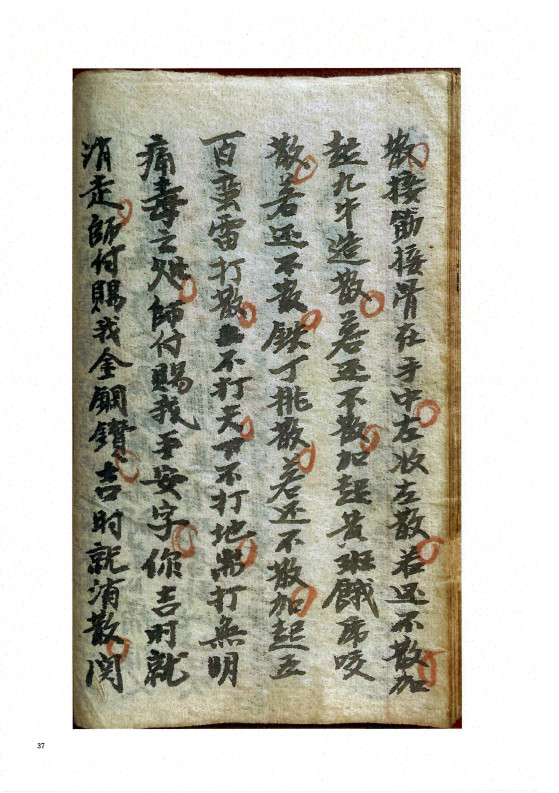 散接筋接骨在手中左收左散若还不散加
起九牛造散若还不散加起苦班餓乕咬
散若还不散鉄丁挑散若还不散加起五
百蛮雷打散不打天下不打地専打無明
痛毒之処師付賜我平安字你吉时就
消走師付賜我金鋼鑚吉时就消散関
37